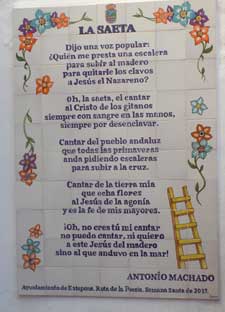 LA SAETA
Dijo una voz popular:
¿Quién me presta una escalera
para subir al madero
para quitarle los clavos
a Jesús el Nazareno?
Oh, la saeta, el cantar
al Cristo de los gitanos
siempre con sangre en las manos,
siempre por desenclavar.
Cantar del pueblo andaluz
que todas las primaveras
anda pidiendo escaleras
para subir a la cruz.
Cantar de la tierra mía
que echa flores
al Jesús de la agonía
y es la fe de mis mayores.
¡Oh, no eres tú mi cantar
no puedo cantar, ni quiero
a este Jesús del madero
sino al que anduvo en la mar!
ANTONIO MACHADO
Ayuntamiento de Estepona. Ruta de la Poesía. Semana Santa de 2017.